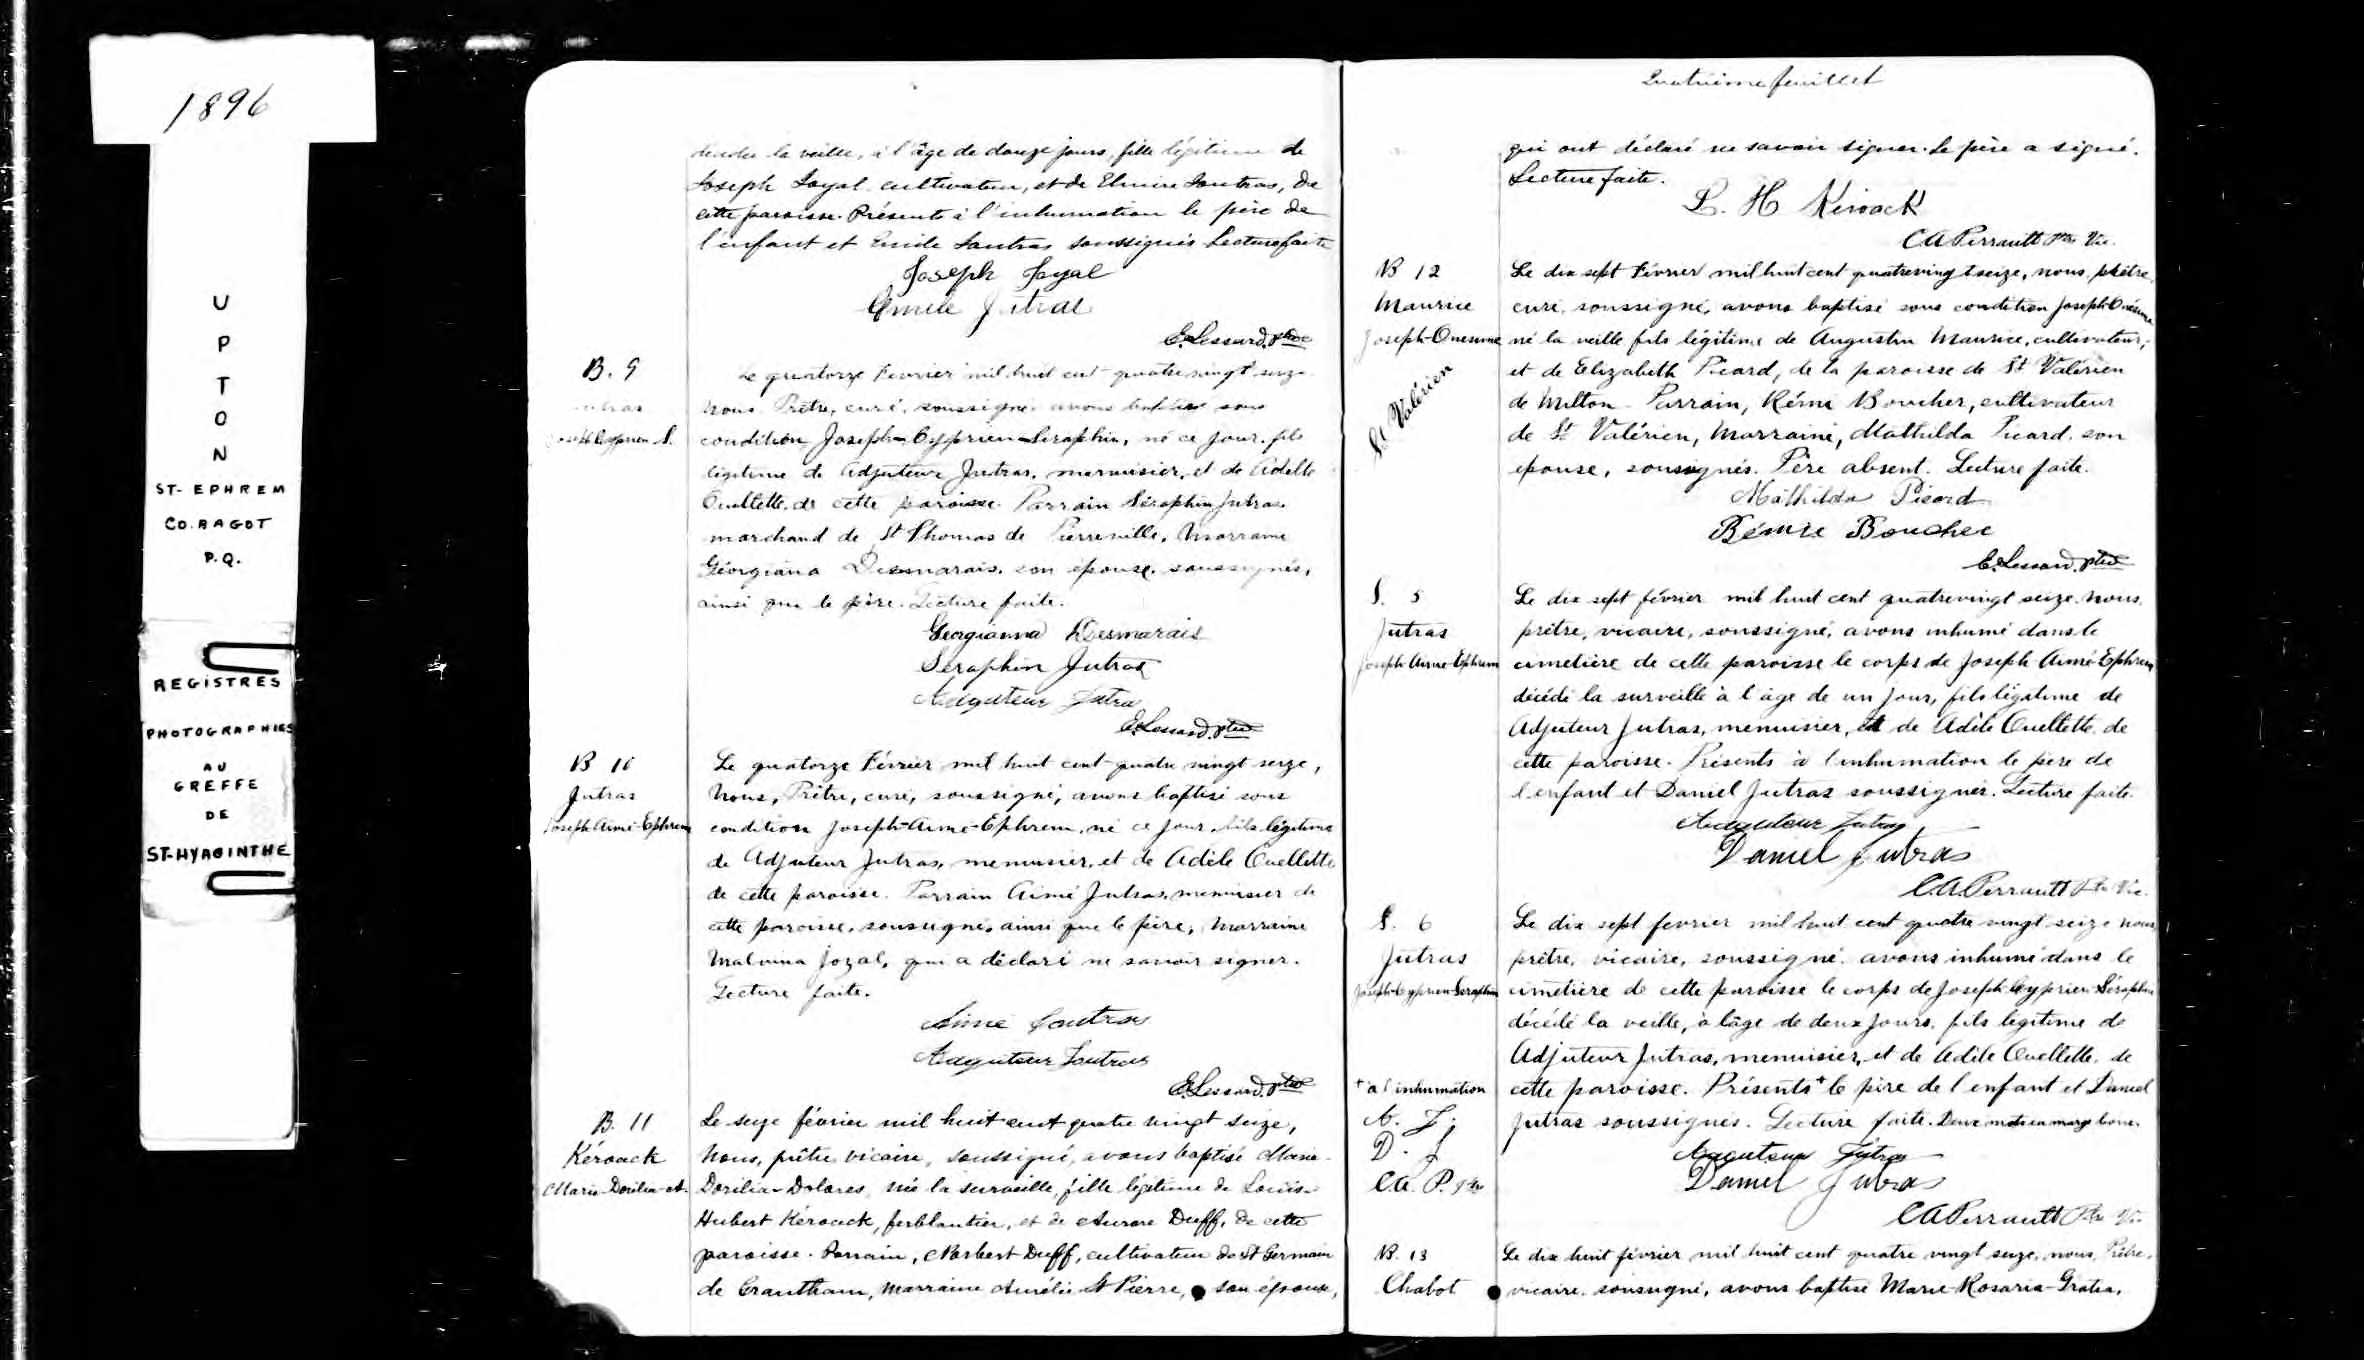 1896
U
P
T
O
N
ST-EPHREM
CO. BAGOT
P.Q.
REGISTRES
PHOTOGRAPHIES
AU
GREFFE
DE
ST-HYACINTHE
la veille, à l'âge de douze jours, fille légitime de
Joseph Joyal cultivateur, et de Elmire Joutras, de
cette paroisse. Présents à l'inhumation le père de
l'enfant et Emile Joutras soussignés Lecture faite
Joseph Joyal
Emile Jutras
E. Lessard, ptre
B. 9
Jutras
Joseph Cyprien S.
Le quatorze Fevrier mil huit cent quatre vingt seize
Nous Prêtre, curé, soussigné avons baptisé sous
condition Joseph-Cyprien-Seraphin, né ce jour, fils
légitime de Adjuteur Jutras, menuisier, et de Adelle
Ouellette, de cette paroisse. Parrain Séraphin Jutras
marchand de St Thomas de Pierreville, Marraine
Géorgiana Desmarais, son épouse, soussignés,
ainsi que le père. Lecture faite.
Georgianna Desmarais
Séraphin Jutras
Adjuteur Jutra
E. Lessard, ptre
B 10
Jutras
Joseph Aimé-Ephrem
Le quatorze Février mil huit cent-quatre vingt seize,
Nous, Prêtre, curé, soussigné, avons baptisé sous
condition Joseph-Aimé-Ephrem, né ce jour fils légitime
de Adjuteur Jutras, menuisier, et de Adèle Ouellette
de cette paroisse. Parrain Aimé Jutras, menuisier de
cette paroisse, soussigné, ainsi que le père, Marraine
Malvina Joyal, qui a déclaré ne savoir signer.
Lecture faite.
Aimé Joutras
Adjuteur Joutras
E. Lessard, ptre
B. 11
Kérouack
Marie-Dorilia-D.
Le seize février mil huit cent quatre vingt seize,
Nous, prêtre vicaire, soussigné, avons baptisé Marie-
Dorilia-Dolores, née la surveille, fille légitime de Louis-
Hubert Kérouack, ferblantier, et de Aurore Duff, de cette
paroisse. Parrain, Norbert Duff, cultivateur de St Germain
de Grantham, Marraine Aurélie St Pierre, son épouse,
Quatrième feuillet
qui ont déclaré ne savoir signer. Le père a signé.
Lecture faite.
L. H Kiroack
C A Perrault Ptre Vic.
B 12
Maurice
Joseph-Onesime
St Valérien
Le dix sept Février mil huit cent quatrevingt seize, nous, prêtre,
curé, soussigné, avons baptisé sous condition Joseph-Onésime
né la veille fils légitime de Augustin Maurice, cultivateur,
et de Elizabeth Picard, de la paroisse de St Valérien
de Milton. Parrain, Rémi Boucher, cultivateur
de St Valérien, Marraine, Mathilda Picard, son
épouse, soussignés. Père absent. Lecture faite.
Mathilda Picard
Rémie Boucher
E. Lessard, ptre
S. 5
Jutras
Joseph-Aimé-Ephrem
Le dix sept février mil huit cent quatrevingt seize, nous,
prêtre, vicaire, soussigné, avons inhumé dans le
cimetière de cette paroisse le corps de Joseph Aimé-Ephrem
décédé la surveille à l'âge de un jour, fils légitime de
Adjuteur Jutras, menuisier, et de Adèle Ouellette, de
cette paroisse. Présents à l'inhumation le père de
l'enfant et Daniel Jutras soussignés. Lecture faite.
Adjuteur Jutras
Daniel Jutras
C. A. Perrault Ptre Vic.
S. 6
Jutras
Joseph-Cyprien-Seraphin
+ à l'inhumation
A. J.
D. J
C.A. P. Ptre
Le dix sept fevrier mil huit cent quatre vingt seize nous,
prêtre, vicaire, soussigné, avons inhumé dans le
cimetière de cette paroisse le corps de Joseph Cyprien Séraphin
décédé la veille, à l'âge de deux jours, fils légitime de
Adjuteur Jutras, menuisier, et de Adèle Ouellette, de
cette paroisse. Présents + le père de l'enfant et Daniel
Jutras soussignés. Lecture faite. Deux mots en marge bons.
Adjuteur Jutras
Daniel Jutras
C A Perrault Ptre Vic
B. 13
Chabot
Le dix huit février mil huit cent quatre vingt seize, nous, Prêtre,
vicaire, soussigné, avons baptisé Marie-Rosaria-Gratia,